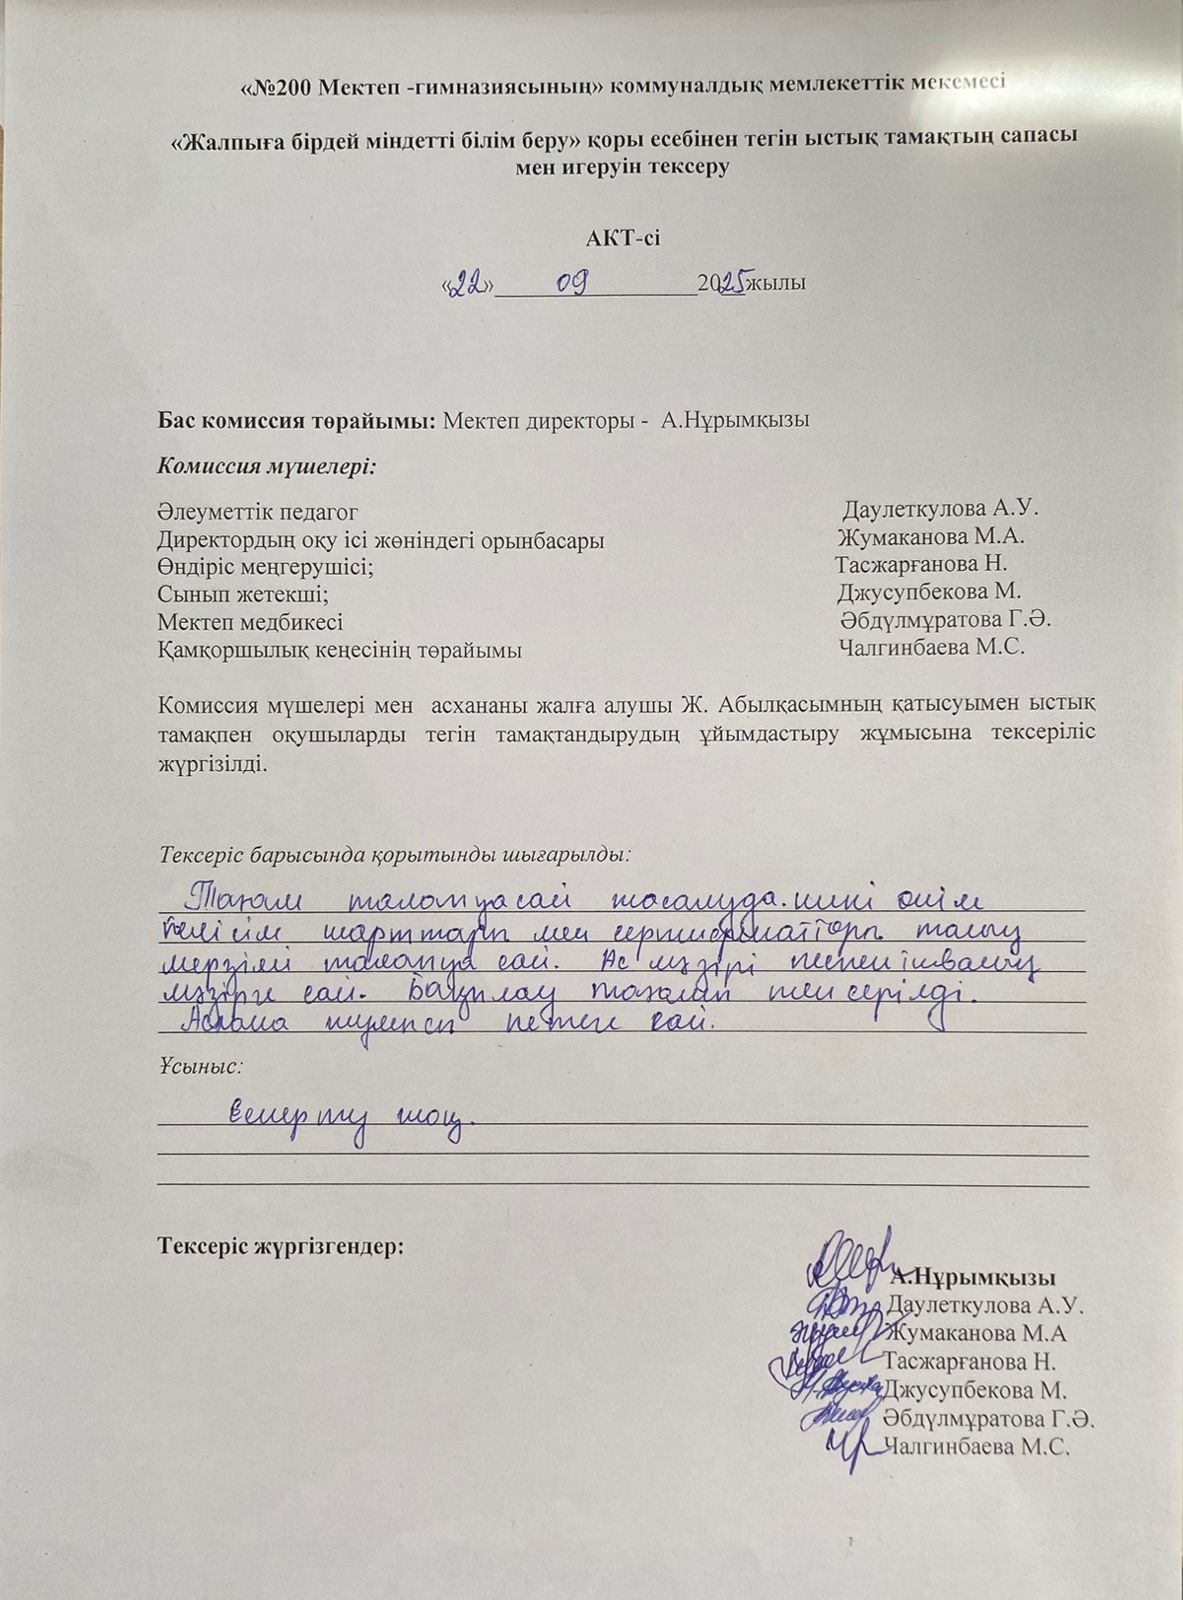 «№200 Мектеп -гимназиясының» коммуналдық мемлекеттік мекемесі
«Жалпыға бірдей міндетті білім беру» қоры есебінен тегін ыстық тамақтың сапасы
мен игеруін тексеру
АКТ-сі
«22» 09 2025жылы
Бас комиссия төрайымы: Мектеп директоры - А.Нұрымқызы
Комиссия мүшелері:
Әлеуметтік педагог Даулеткулова А.У.
Директордың оқу ісі жөніндегі орынбасары Жумаканова М.А.
Өндіріс меңгерушісі; Тасжарғанова Н.
Сынып жетекші; Джусупбекова М.
Мектеп медбикесі Әбдүлмұратова Г.Ә.
Қамқоршылық кеңесінің төрайымы Чалгинбаева М.С.
Комиссия мүшелері мен асхананы жалға алушы Ж. Абылқасымның қатысуымен ыстық
тамақпен оқушыларды тегін тамақтандырудың ұйымдастыру жұмысына тексеріліс
жүргізілді.
Тексеріс барысында қорытынды шығарылды:
Тағам талапқа сай жасалуда. шикі өнім
келісім шарттары мен сертификаттары тасыу
мерзімі талапқа сай. Ас мәзірі
мәзірге сай. Бақылау тағам тексерілді.
Асхана сай.
Ұсыныс:
Ескерту жоқ.
Тексеріс жүргізгендер:
А.Нұрымқызы
Даулеткулова А.У.
Жумаканова М.А
Тасжарғанова Н.
Джусупбекова М.
Әбдүлмұратова Г.Ә.
Чалгинбаева М.С.